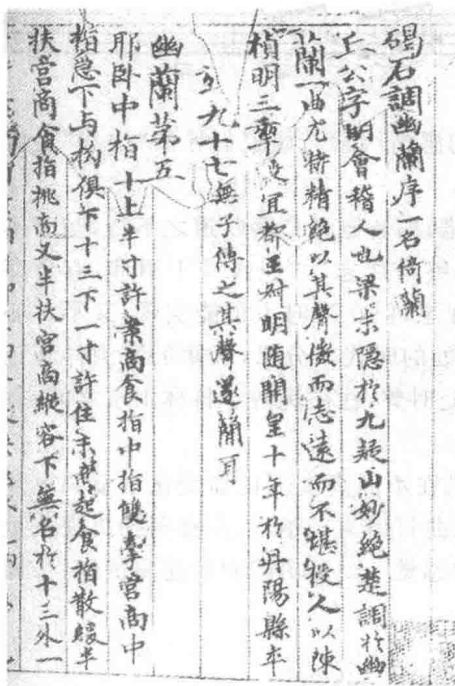 碣石調幽蘭序一名倚蘭
丘公字明會稽人也梁末隱於九疑山妙絕楚調於幽
蘭一曲尤特精絕以其聲微而志遠而不堪授人以陳
禎明三年授宜都王叔明隨開皇十年於丹陽縣卒
九十七無子傳之其聲遂簡耳
幽蘭第五
耶臥中指十上半寸許案商食指中指雙牽宮商中
指急下与拘俱下十三下一寸許住末商起食指散緩半
扶宮商食指挑商又半扶宮商縱容下無名於十三外一